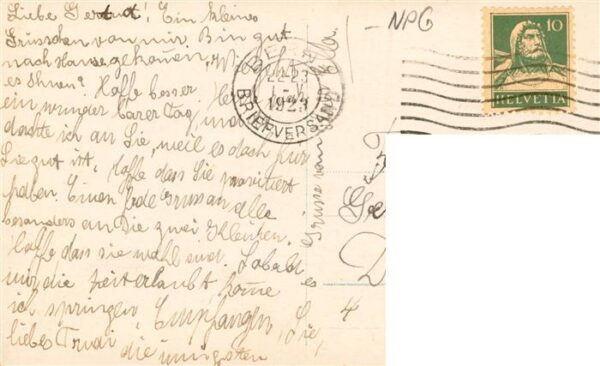 Liebe Gertrut! Ein kleines
Grüsschen von mir. Bin gut
nach Hause gekommen, Wie geht
es Ihnen? Hoffe besser
ein wunder barer Tag, und
dachte ich an Sie, weil es doch für
Sie gut ist. Hoffe dass Sie
haben. Einen Gruss an alle
besonders an Die zwei Kleinen.
Hoffe dass sie wohl sind. Sobald
mir die zeit erlaubt kome
ich springen, Empfangen, Sie,
liebes Trudi, die innigsten
Grüsse von
es
- NPG
BERN
22-23
1923
BRIEFVERSAND
10
HELVETIA
Ge
D
4